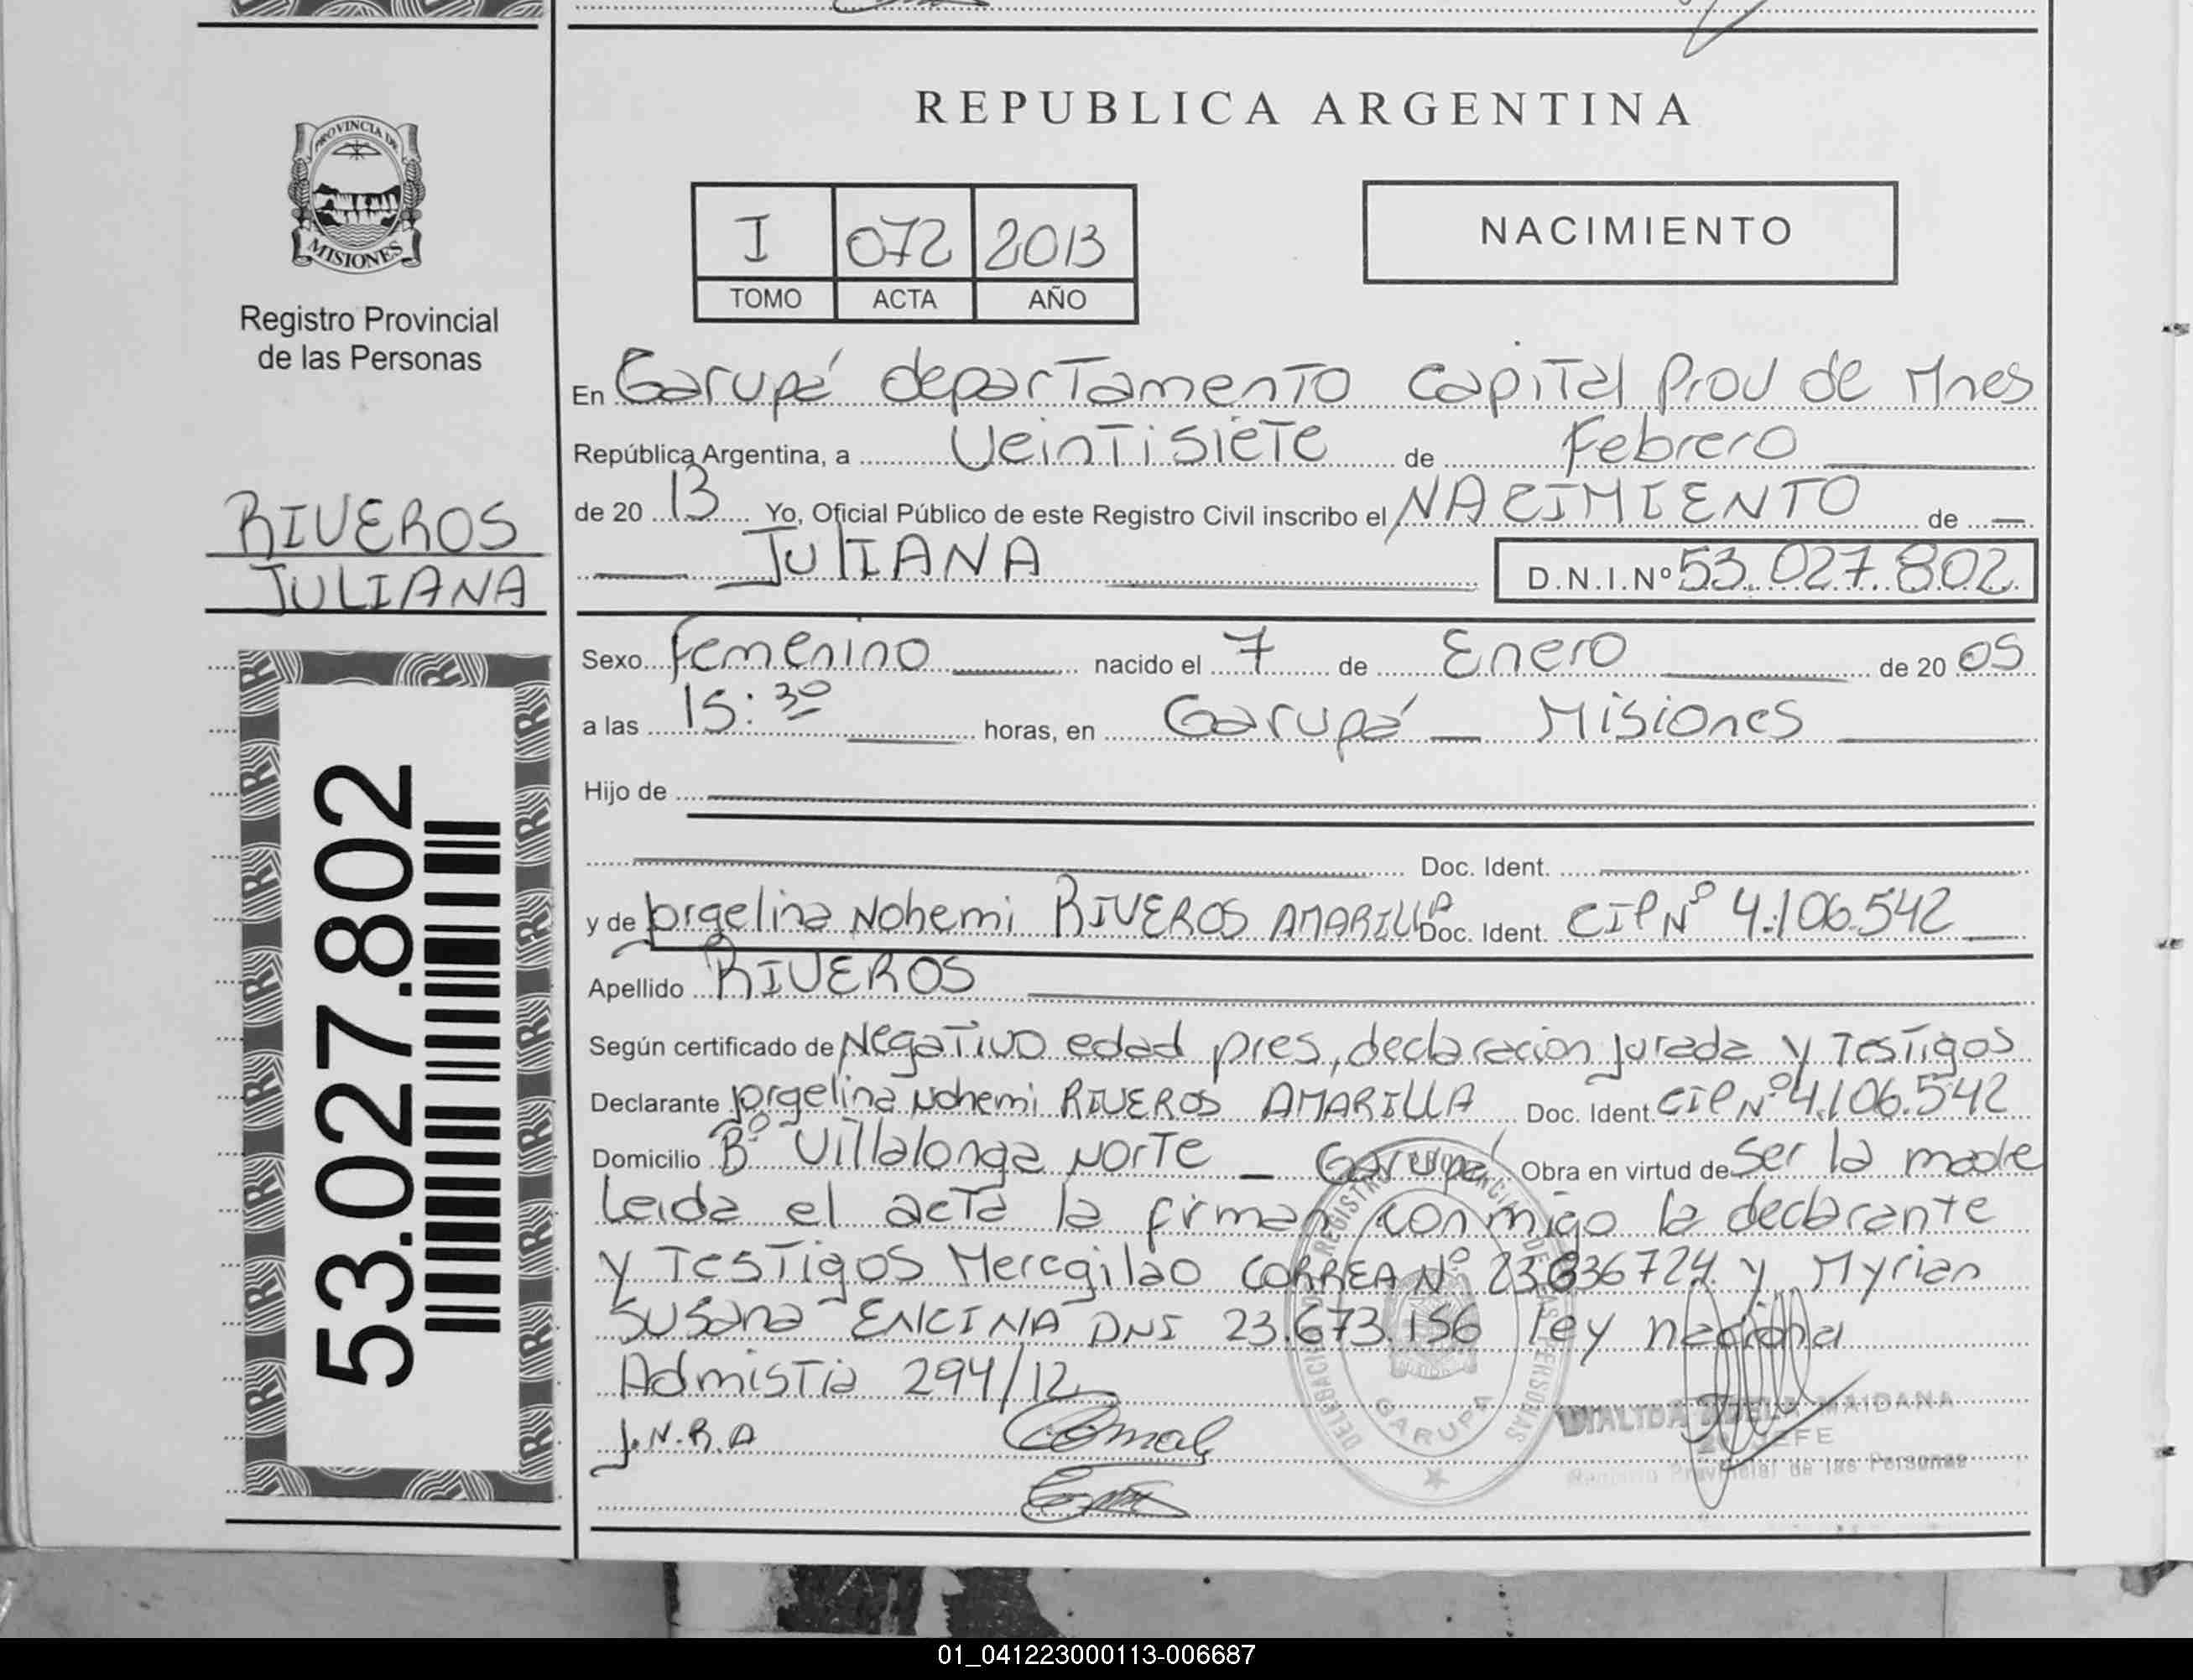 REPUBLICA ARGENTINA
PROVINCIA DE
MISIONES
Registro Provincial
de las Personas
RIVEROS
JULIANA
53.027.802
I 072 2013
TOMO ACTA AÑO
NACIMIENTO
En Garupá departamento Capital Prov de Mnes
República Argentina, a Veintisiete de Febrero
de 20 13 Yo, Oficial Público de este Registro Civil inscribo el NACIMIENTO de
JULIANA D.N.I.Nº 53.027.802
Sexo Femenino nacido el 7 de Enero de 20 05
a las 15:30 horas, en Garupá - Misiones
Hijo de
Doc. Ident.
y de Jorgelina Nohemi RIVEROS AMARILLA Doc. Ident. CIP Nº 4.106.542
Apellido RIVEROS
Según certificado de Negativo edad pres, declaracion jurada y Testigos
Declarante Jorgelina Nohemi RIVEROS AMARILLA Doc. Ident. CIP Nº 4.106.542
Domicilio Bº Villalonga Norte - Garupá Obra en virtud de Ser la madre
Leida el acta la firman conmigo la declarante
y Testigos Meregildo CORREA Nº 23.836724 y Myrian
Susana ENCINA DNI 23.673.156 ley nacional
Admistia 294/12
J.N.R.A
DELEGACION REGISTRO PROVINCIAL DE LAS PERSONAS
GARUPA
MAIDANA
JEFE
Registro Provincial de las Personas
01_041223000113-006687